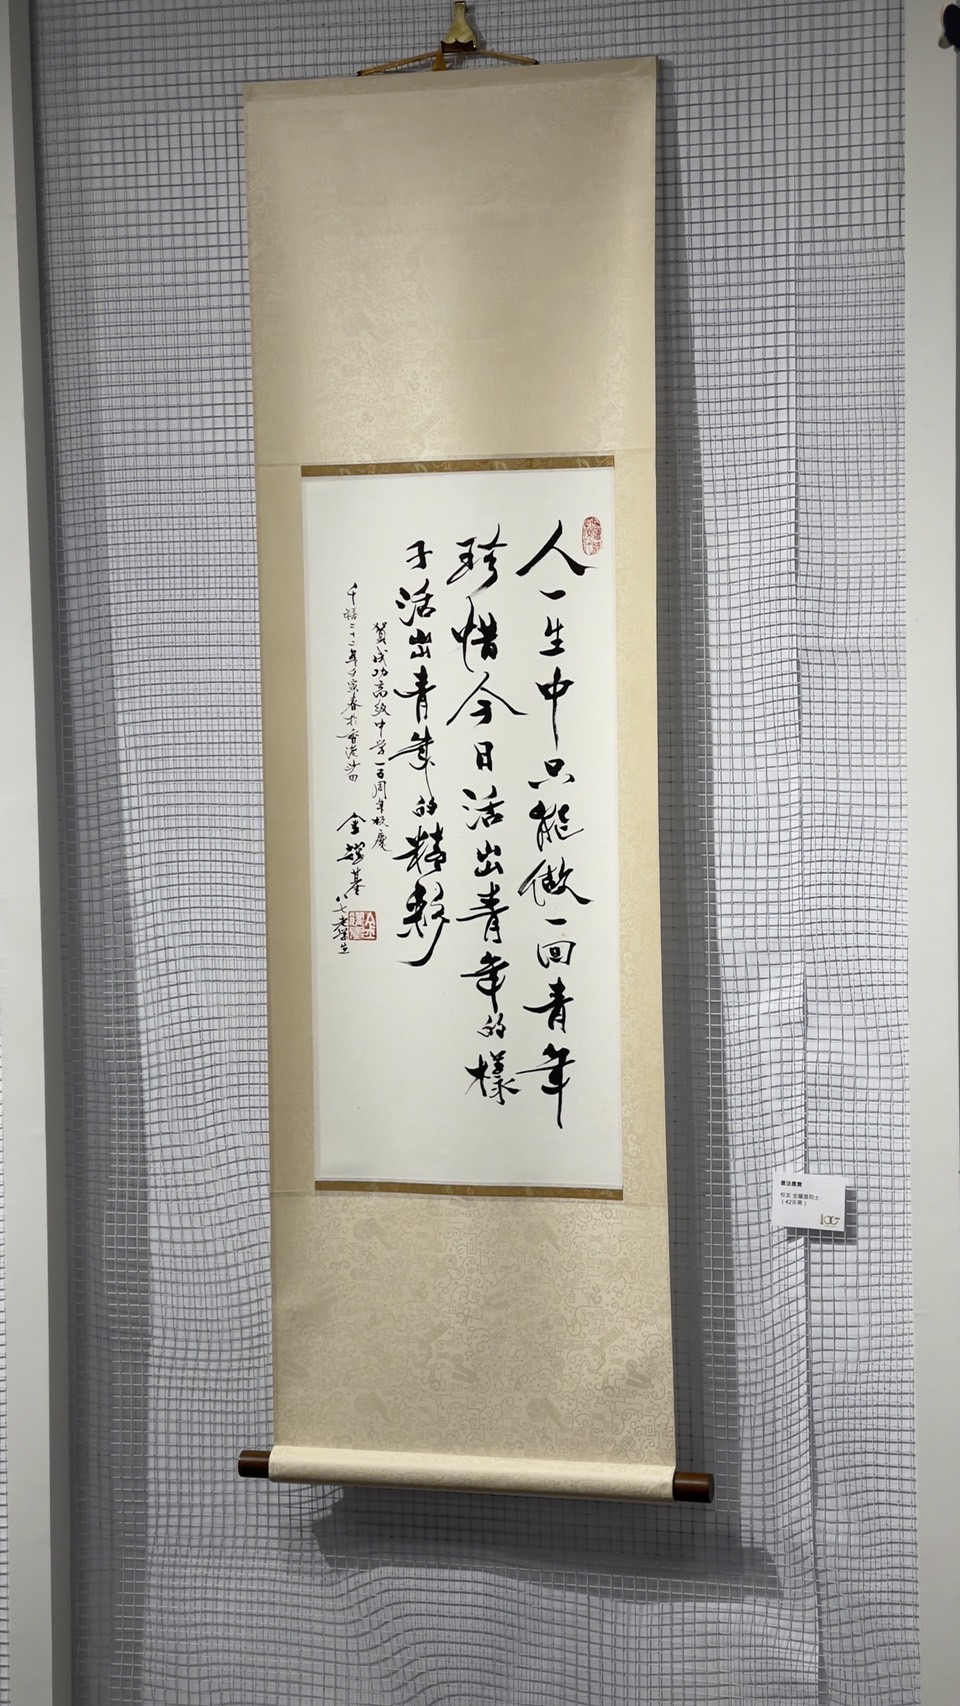 人一生中只能做一回青年
珍惜今日活出青年的樣
子活出青年的精彩
賀成功高級中学一百周年校慶
千禧二十二年壬寅春於香港沙田
金耀基
八七老学生
書法墨寶
校友 金耀基院士
（42年畢）
100